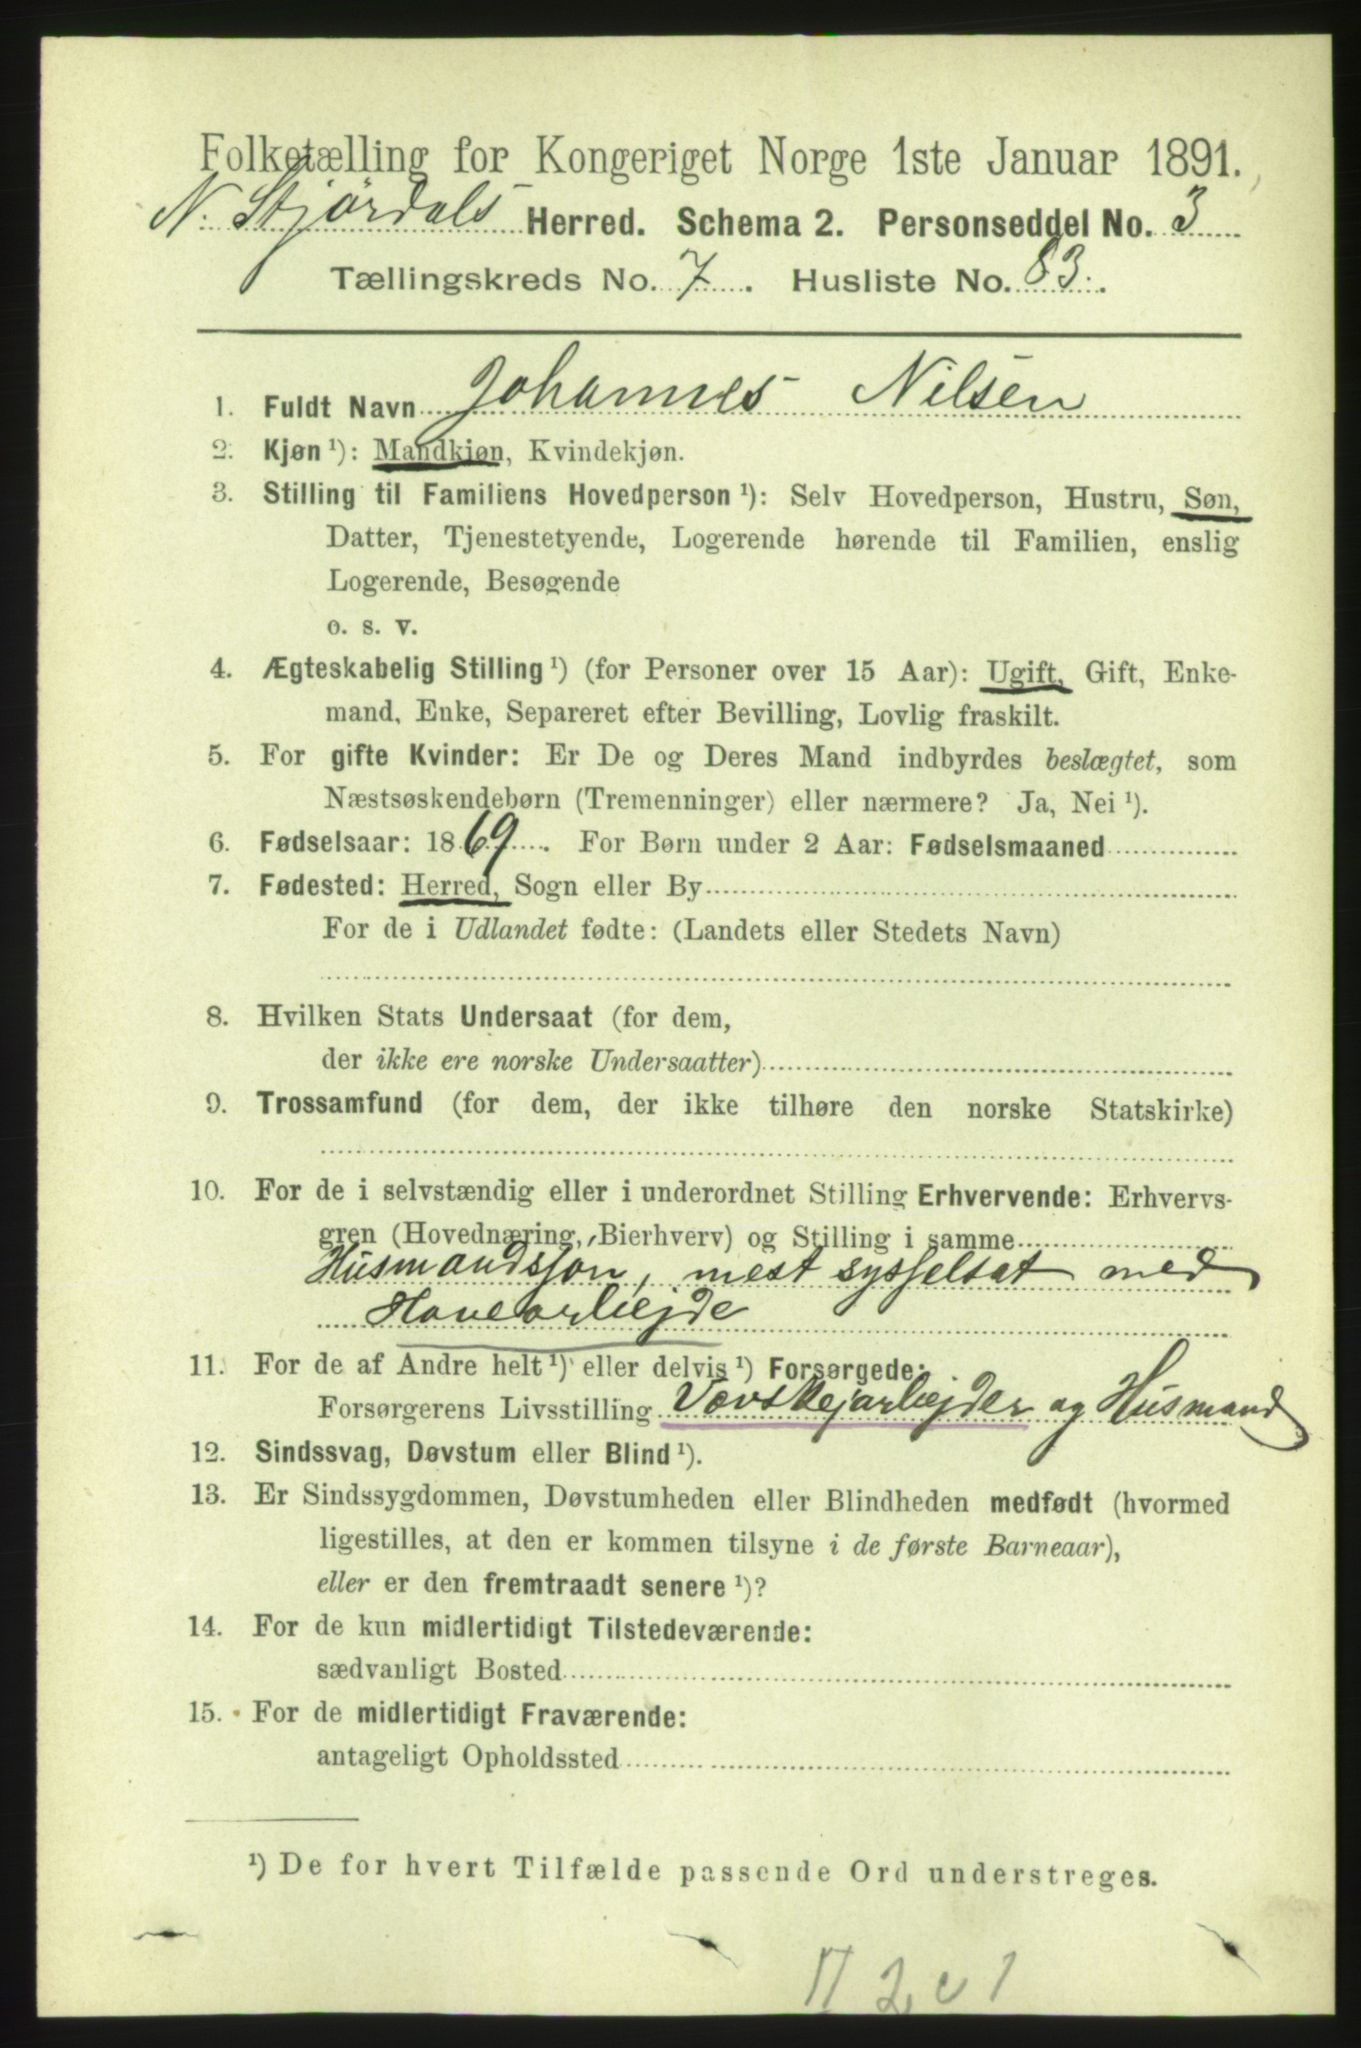 Folketælling for Kongeriget Norge 1ste Januar 1891.
N. Stjørdals Herred. Schema 2. Personseddel No. 3
Tællingskreds No. 7. Husliste No. 83.
1. Fuldt Navn Johannes Nilsen
2. Kjøn ¹): Mandkjøn, Kvindekjøn.
3. Stilling til Familiens Hovedperson ¹): Selv Hovedperson, Hustru, Søn,
Datter, Tjenestetyende, Logerende hørende til Familien, enslig
Logerende, Besøgende
o. s. v.
4. Ægteskabelig Stilling ¹) (for Personer over 15 Aar): Ugift, Gift, Enke-
mand, Enke, Separeret efter Bevilling, Lovlig fraskilt.
5. For gifte Kvinder: Er De og Deres Mand indbyrdes beslægtet, som
Næstsøskendebørn (Tremenninger) eller nærmere? Ja, Nei ¹).
6. Fødselsaar: 1869. For Børn under 2 Aar: Fødselsmaaned
7. Fødested: Herred, Sogn eller By
For de i Udlandet fødte: (Landets eller Stedets Navn)
8. Hvilken Stats Undersaat (for dem,
der ikke ere norske Undersaatter)
9. Trossamfund (for dem, der ikke tilhøre den norske Statskirke)
10. For de i selvstændig eller i underordnet Stilling Erhvervende: Erhvervs-
gren (Hovednæring, Bierhverv) og Stilling i samme
Husmandssøn, mest sysselsat med
Havearbejde
11. For de af Andre helt ¹) eller delvis ¹) Forsørgede:
Forsørgerens Livsstilling og Husmand
12. Sindssvag, Døvstum eller Blind ¹).
13. Er Sindssygdommen, Døvstumheden eller Blindheden medfødt (hvormed
ligestilles, at den er kommen tilsyne i de første Barneaar),
eller er den fremtraadt senere ¹)?
14. For de kun midlertidigt Tilstedeværende:
sædvanligt Bosted
15. For de midlertidigt Fraværende:
antageligt Opholdssted
¹) De for hvert Tilfælde passende Ord understreges.